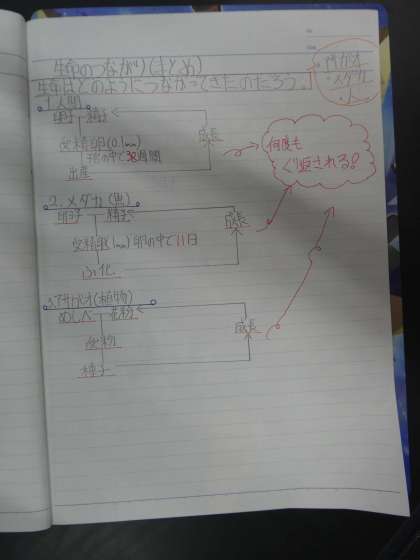 生命のつながり(まとめ)
生命はどのようにつながってきたのだろう。
・アサガオ
・メダカ
・人
1 人間
卵子 精子
受精卵(0.1mm)
子宮の中で38週間
出産
成長
何度も
くり返される!
2.メダカ(魚)
卵子 精子
受精卵(1mm) 卵の中で11日
ふ化
成長
3.アサガオ(植物)
めしべ 花粉
受粉
種子
成長